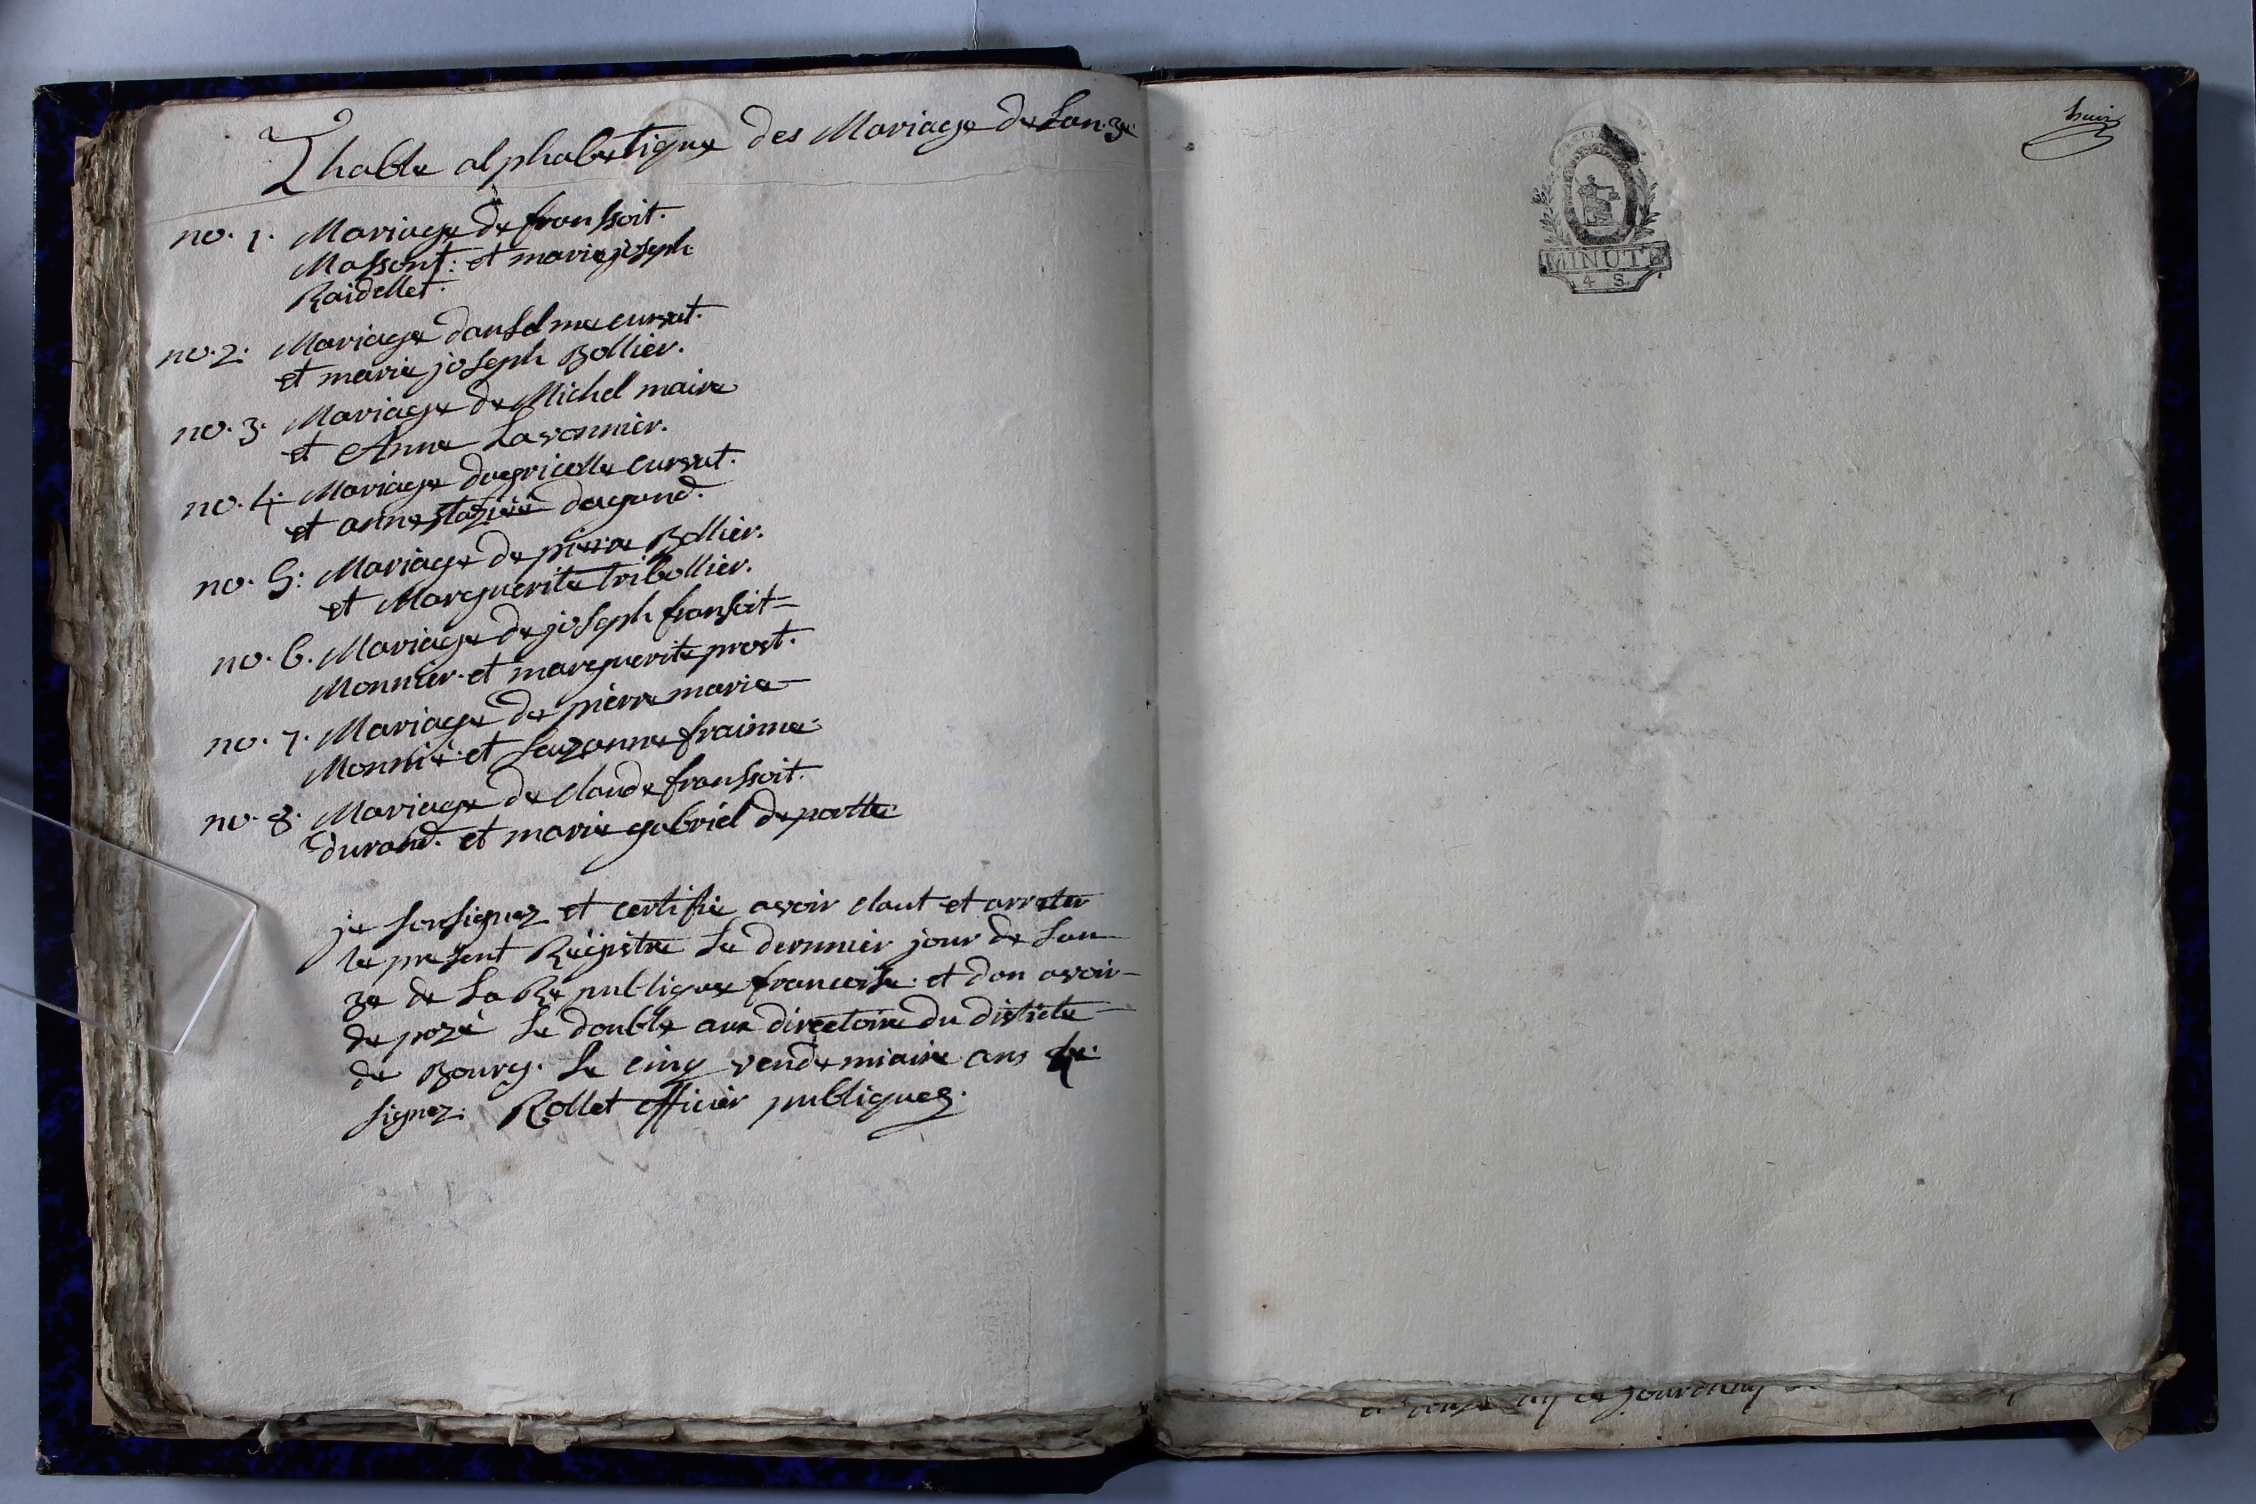 Thable alphabetique des Mariage de Lan 3e
no. 1. Mariage de franssoit.
Massont: et marie joseph
Raidellet.
no. 2. Mariage danselme cursat.
et marie joseph Bollier.
no. 3. Mariage de Michel maire
et Anne Lavonnier.
no. 4. Mariage dagricolle cursat.
et annestaziée dagand.
no. 5: Mariage de pierre Bollier.
et Marguerite tribollier.
no. 6. Mariage de joseph fransoit
Monnier. et marguerite prost.
no. 7. Mariage de pierre marie
Monnié. et Sauzanne frainne
no. 8. Mariage de claude franssoit.
durand. et marie gabriel deportte
je sousignez et certifie avoir claut et arreter
le present Régistre Le dernnier jour de Lan
3e de La Republique francoise. et don avoir
depozé Le double aux directoire du districte
de Bourg. Le cinq vendemiaire ans 4e.
signez: Rollet officier publiques.
huit
MINUTE
4 S.